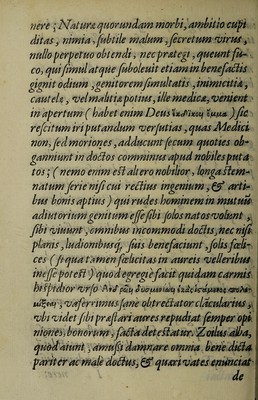 nere; Naturæ quorundam morbi, ambitio cupi
ditas, nimia, subtile malum, secretum virus,
nullo perpetuo obtendi, nec prætegi, queunt fu-
co, qui simul atque suboleuit etiam in benefactis
gignit odium, genitorem simultatis, inimicitiæ,
cautelæ, vel malitiæ potius, ille medicæ, venient
in apertum (habet enim Deus ἔκδικον ὄμμα) sic
rescitum iri putandum versutias, quas Medici
non, sed moriones, adducunt secum quoties ob-
ganniunt in doctos comminus apud nobiles puta
tos; (nemo enim est altero nobilior, longa stem-
natum serie nisi cui rectius ingenium, & arti-
bus bonis aptius) qui rudes hominem in mutuũ
adiutorium genitum esse sibi solos natos volunt,
sibi viuunt, omnibus incommodi doctis, nec nisi
planis, ludionibusq́; suis benefaciunt, solis fœli-
ces (si qua tamen fœlicitas in aureis velleribus
inesse potest) quod egregie facit quidam carmis
hispidor vrso
vaferrimus sane obtrectator clãcularius,
vbi videt sibi præstari aures repudiat semper opi
niones bonorum, facta detestatur. Zoilus alba,
quod aiunt, amussi damnare omnia bene dicta
pariter ac male doctus, & quæri vates enunciat
de